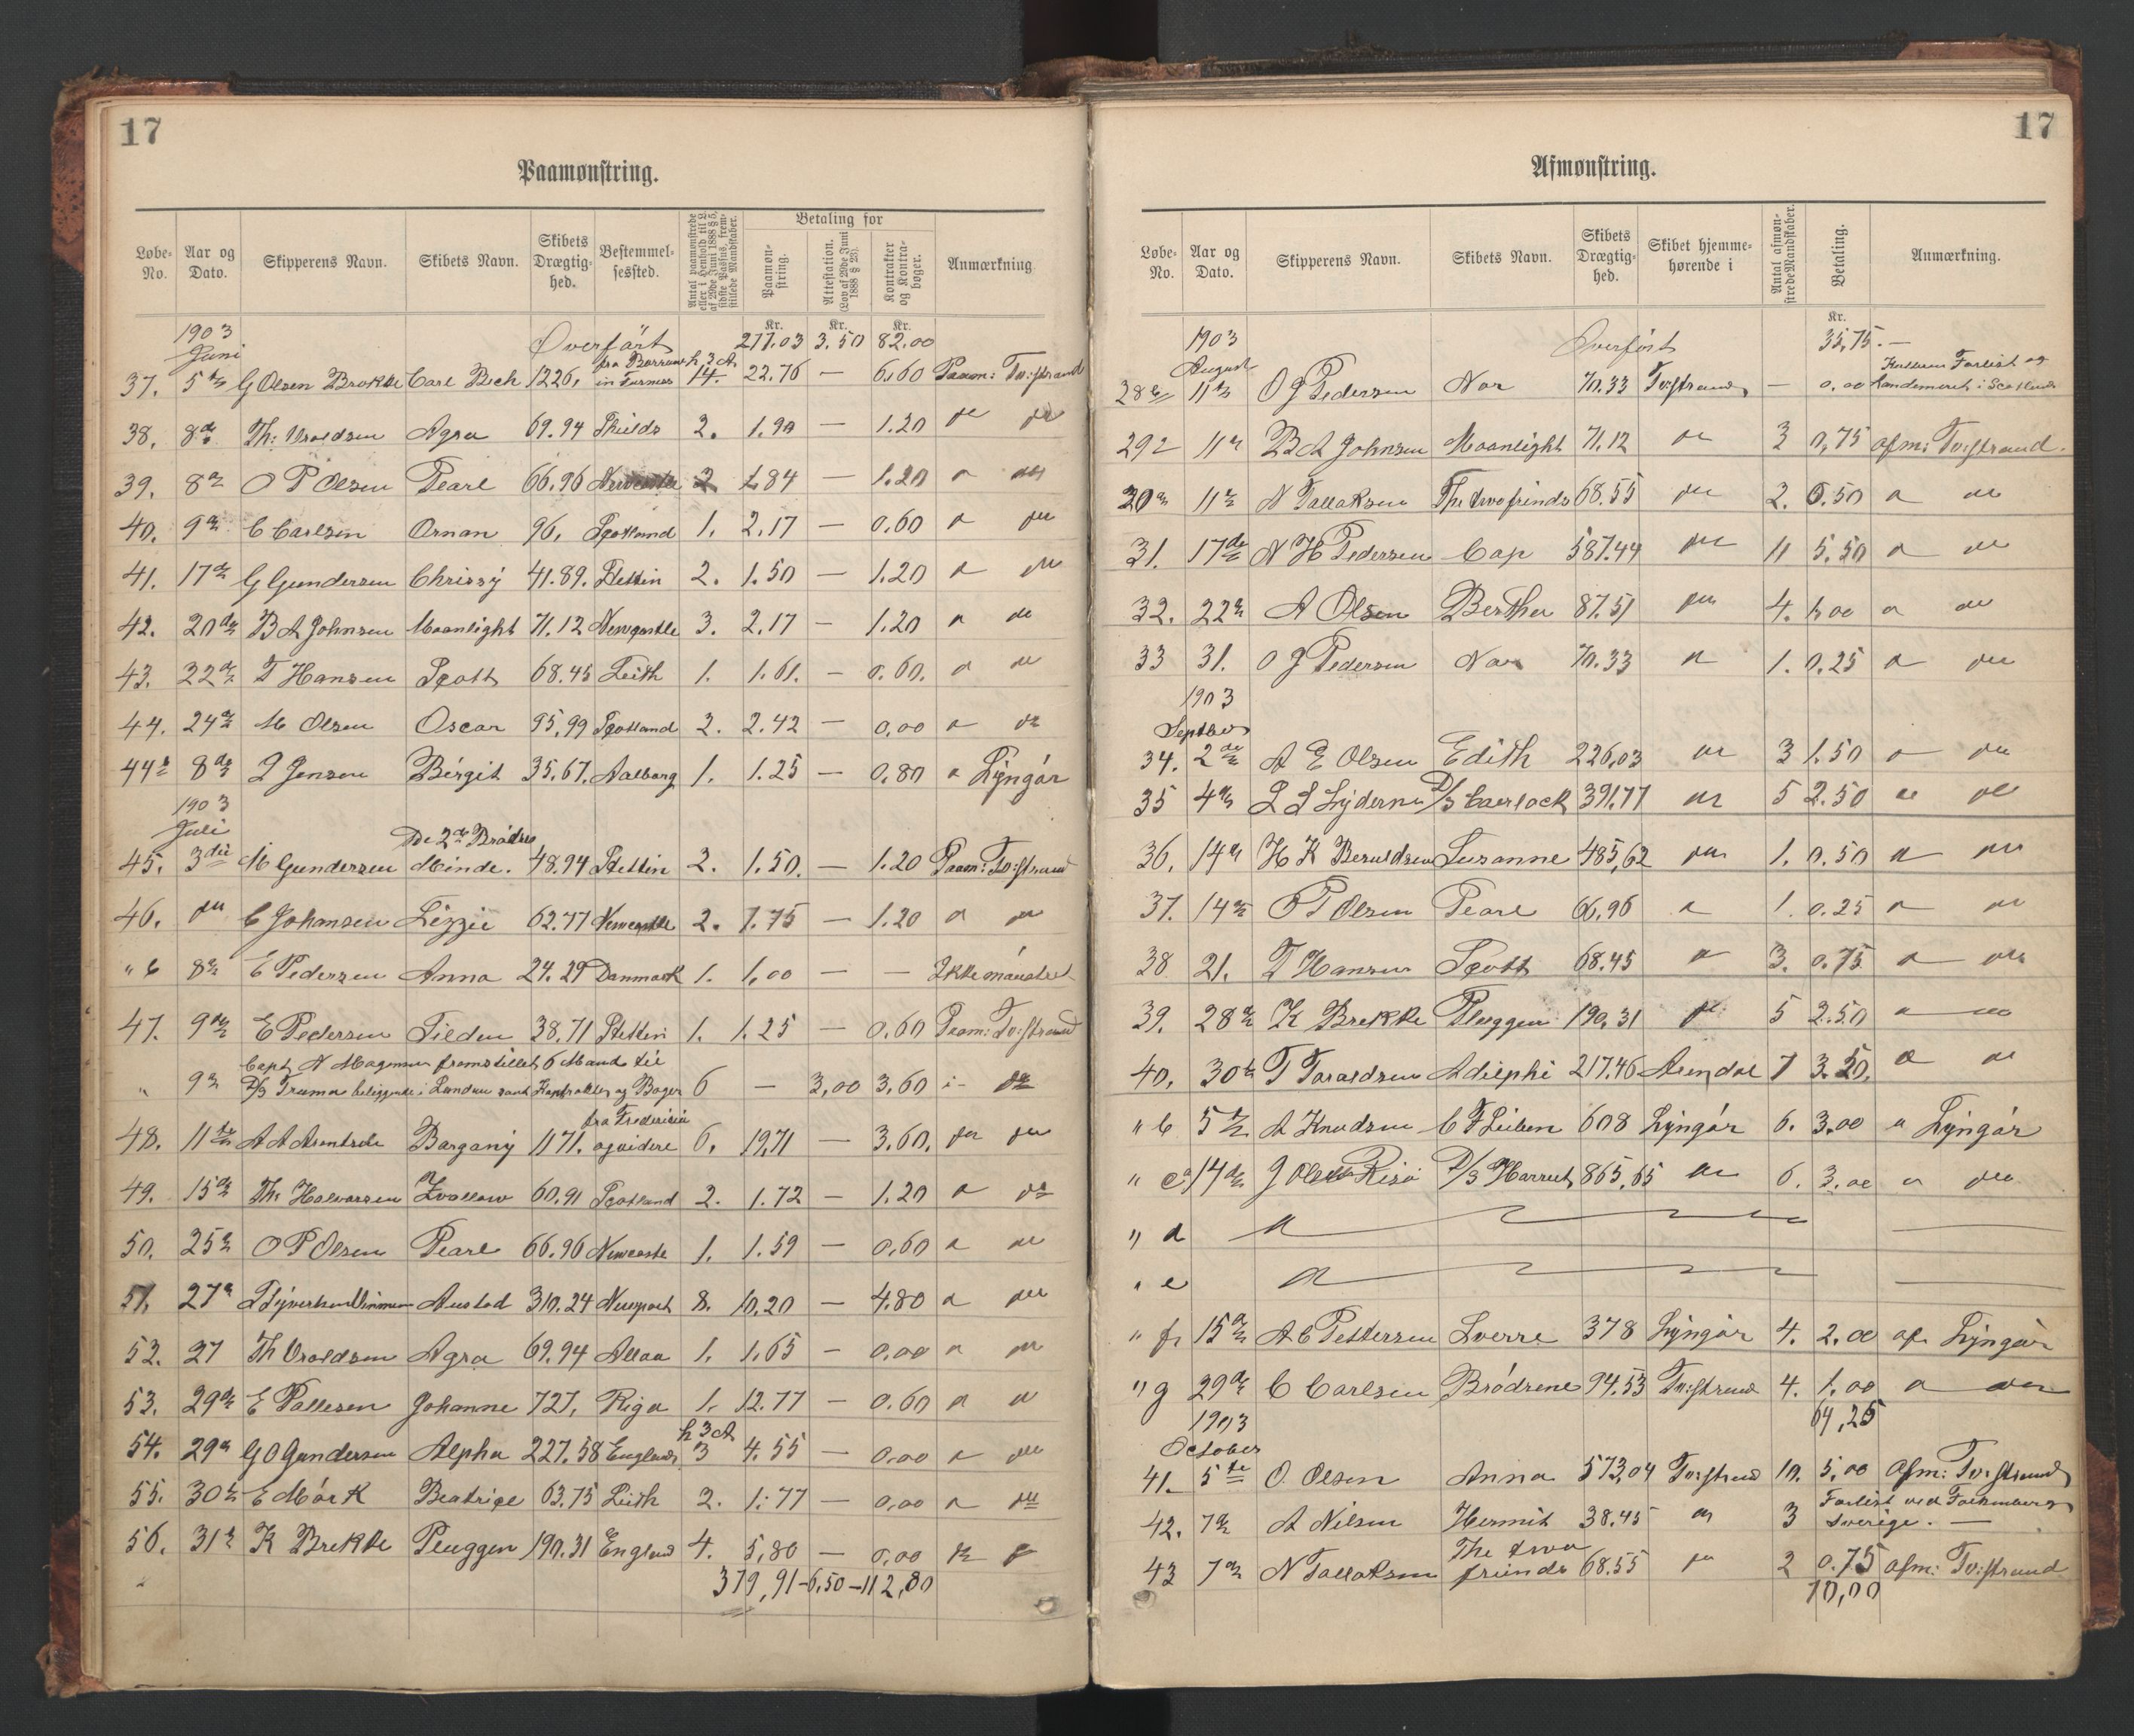 17
Paamønstring.
Løbe-No. Aar og Dato. Skipperens Navn. Skibets Navn. Skibets Drægtig-hed. Bestemmel-sessted. Antal paamønstrede eller i Henhold til L. af 29de Juni 1888 § 5, sidste Passus, frem-stillede Mandskaber. Betaling for Paamøn-string. Attestation. (Lov af 29de Juni 1888 § 25). Kontrakter og Kontra-bøger. Anmærkning
Kr. Kr. Kr.
1903 Overført 217.03 3.50 82.00
Juni fra Barrow h 3 A
37. 5te G Olsen Brokke Carl Bech 1226, in Furness 14. 22.76 — 6,60 Paam: Tv:strand
38. 8de Th: Uroldsen Agra 69.94 Shields 2. 1.90 — 1.20 do do
39. 8de O P Olsen Pearl 66.96 Newcastle 2 1.84 — 1.20 do do
40. 9de C Carlsen Ornan 96, Scotland 1. 2.17 — 0.60 do do
41. 17de G Gundersen Chrissy 41.89. Stettin 2. 1.50 — 1.20 do do
42. 20de B A Johnsen Moonlight 71.12 Newcastle 3. 2.17 — 1.20 do do
43. 22de T Hansen Scott 68.45 Leith 1. 1.61. — 0.60. do do
44. 24de M Olsen Oscar 95,99 Scotland 2. 2.42 — 0,00 do do
44b 8de J Jensen Birgit 35,67. Aalborg 1. 1.25 — 0.80 do Lyngør
1903
Juli De 2de Brødre
45. 3die M Gundersen Minde. 48.94 Stettin 2. 1.50. — 1.20 Paam: Tv:strand
46. do C Johansen Lizzie 62.77 Newcastle 2. 1.75 — 1.20 do do
" b 8de E Pedersen Anna 24.29 Danmark 1. 1,00 — — Ikke mønstret
47. 9de E Pedersen Tilden 38.71 Stettin 1. 1.25 — 0.60 Paam: Tv:strand
Capt N Magnussen fremstillet 6 Mand til
" 9de D/S Truma beliggende i London samt Kontrakter og Bøger 6 — 3,00 3,60 i- do
fra Fredericia
48. 11te A A Arntsen Bargany 1171. og videre 6. 19,71 — 3.60. do do
49. 15de Th: Halvorsen Zvallow 60.91 Scotland 2. 1.72 — 1.20 do do
50. 25de O P Olsen Pearl 66.96 Newcastle 1. 1.59 — 0,60 do do
51. 27de Austad 310.24 Newport 8. 10,20 — 4.80 do do
52. 27 Th Uroldsen Agra 69.94 Alloa 1. 1.65 — 0.00 do do
53. 29de E Tallesen Johanne 727, Riga 1. 12.77 — 0.60 do do
h 3 A
54. 29de G O Gundersen Alpha 227.58 England 3 4.55 — 0.00 do do
55. 30te E Mørk Beatrice 63.75 Leith 2. 1.77 — 0,00 do do
56. 31te K Brekke Pluggen 190.31 England 4. 5,80 — 0,00 do do
379,91 - 6,50 - 112,80
17
Afmønstring.
Løbe-No. Aar og Dato. Skipperens Navn. Skibets Navn. Skibets Drægtig-hed. Skibet hjemme-hørende i Antal afmøn-strede Mandskaber. Betaling. Anmærkning.
Kr.
1903 Overført 35,75. —
August Forlist og
28de 11te O J Pedersen Nor 70.33 Tv:strand — 0,00 kondemneret i Scotland
29de 11te B A Johnsen Moonlight 71.12 do 3 0,75 afm: Tv:strand.
30de 11te N Tallaksen The two frinds 68.55 do 2. 0.50 do do
31. 17de N H Pedersen Cap 587.44 do 11 5.50 do do
32. 22de A Olsen Bertha 87.51 do 4. 1.00 do do
33 31. O J Pedersen Nor 70.33 do 1. 0.25 do do
1903
Septber
34. 2de A E Olsen Edith 226,03 do 3 1.50 do do
35 4de D/S Caerlock 391,77 do 5 2.50 do do
36. 14de H K Beruldsen Susanne 485,62 do 1. 0.50 do do
37. 14de O P Olsen Pearl 66,96 do 1. 0.25 do do
38 21. T Hansen Scott 68.45 do 3. 0.75 do do
39. 28de K Brekke Pluggen 190,31 do 5 2.50 do do
40. 30te T Taraldsen Adelphi 217.46 Arendal 7 3.50. do do
" b 5te A Knudsen C F Liben 608 Lyngør 6. 3.00 do Lyngør
" c 14de J Olsen Risø D/S Harriet 865,65 do 6. 3,00 do do
" d do
" e do
" f 15de A C Pettersen Sverre 378 Lyngør 4. 2.00 af Lyngør
" g 29de C Carlsen Brødrene 94.53 Tv:strand 4. 1.00 do do
1903 64,25
October
41. 5te O. Olsen Anna 573,04 Tv:strand 10. 5,00 Afm: Tv:strand
Forlist ved Falkenberg
42. 7de A Nilsen Hermit 38.45 do 3 Sverige. —
The two
43 7de N Tallaksen friends 68.55 do 2 0.75 afm: Tv:strand
70,00